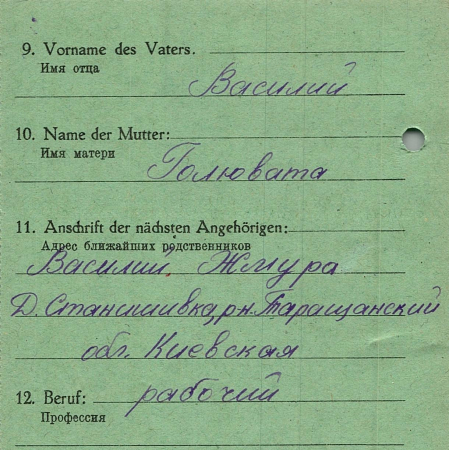 9. Vorname des Vaters.
Имя отца
Василий
10. Name der Mutter:
Имя матери
Голювата
11. Anschrift der nächsten Angehörigen:
Адрес ближайших родственников
Василий Жмура
Д. Станишивка, рн. Таращанский
обл. Киевская
12. Beruf: рабочий
Профессия